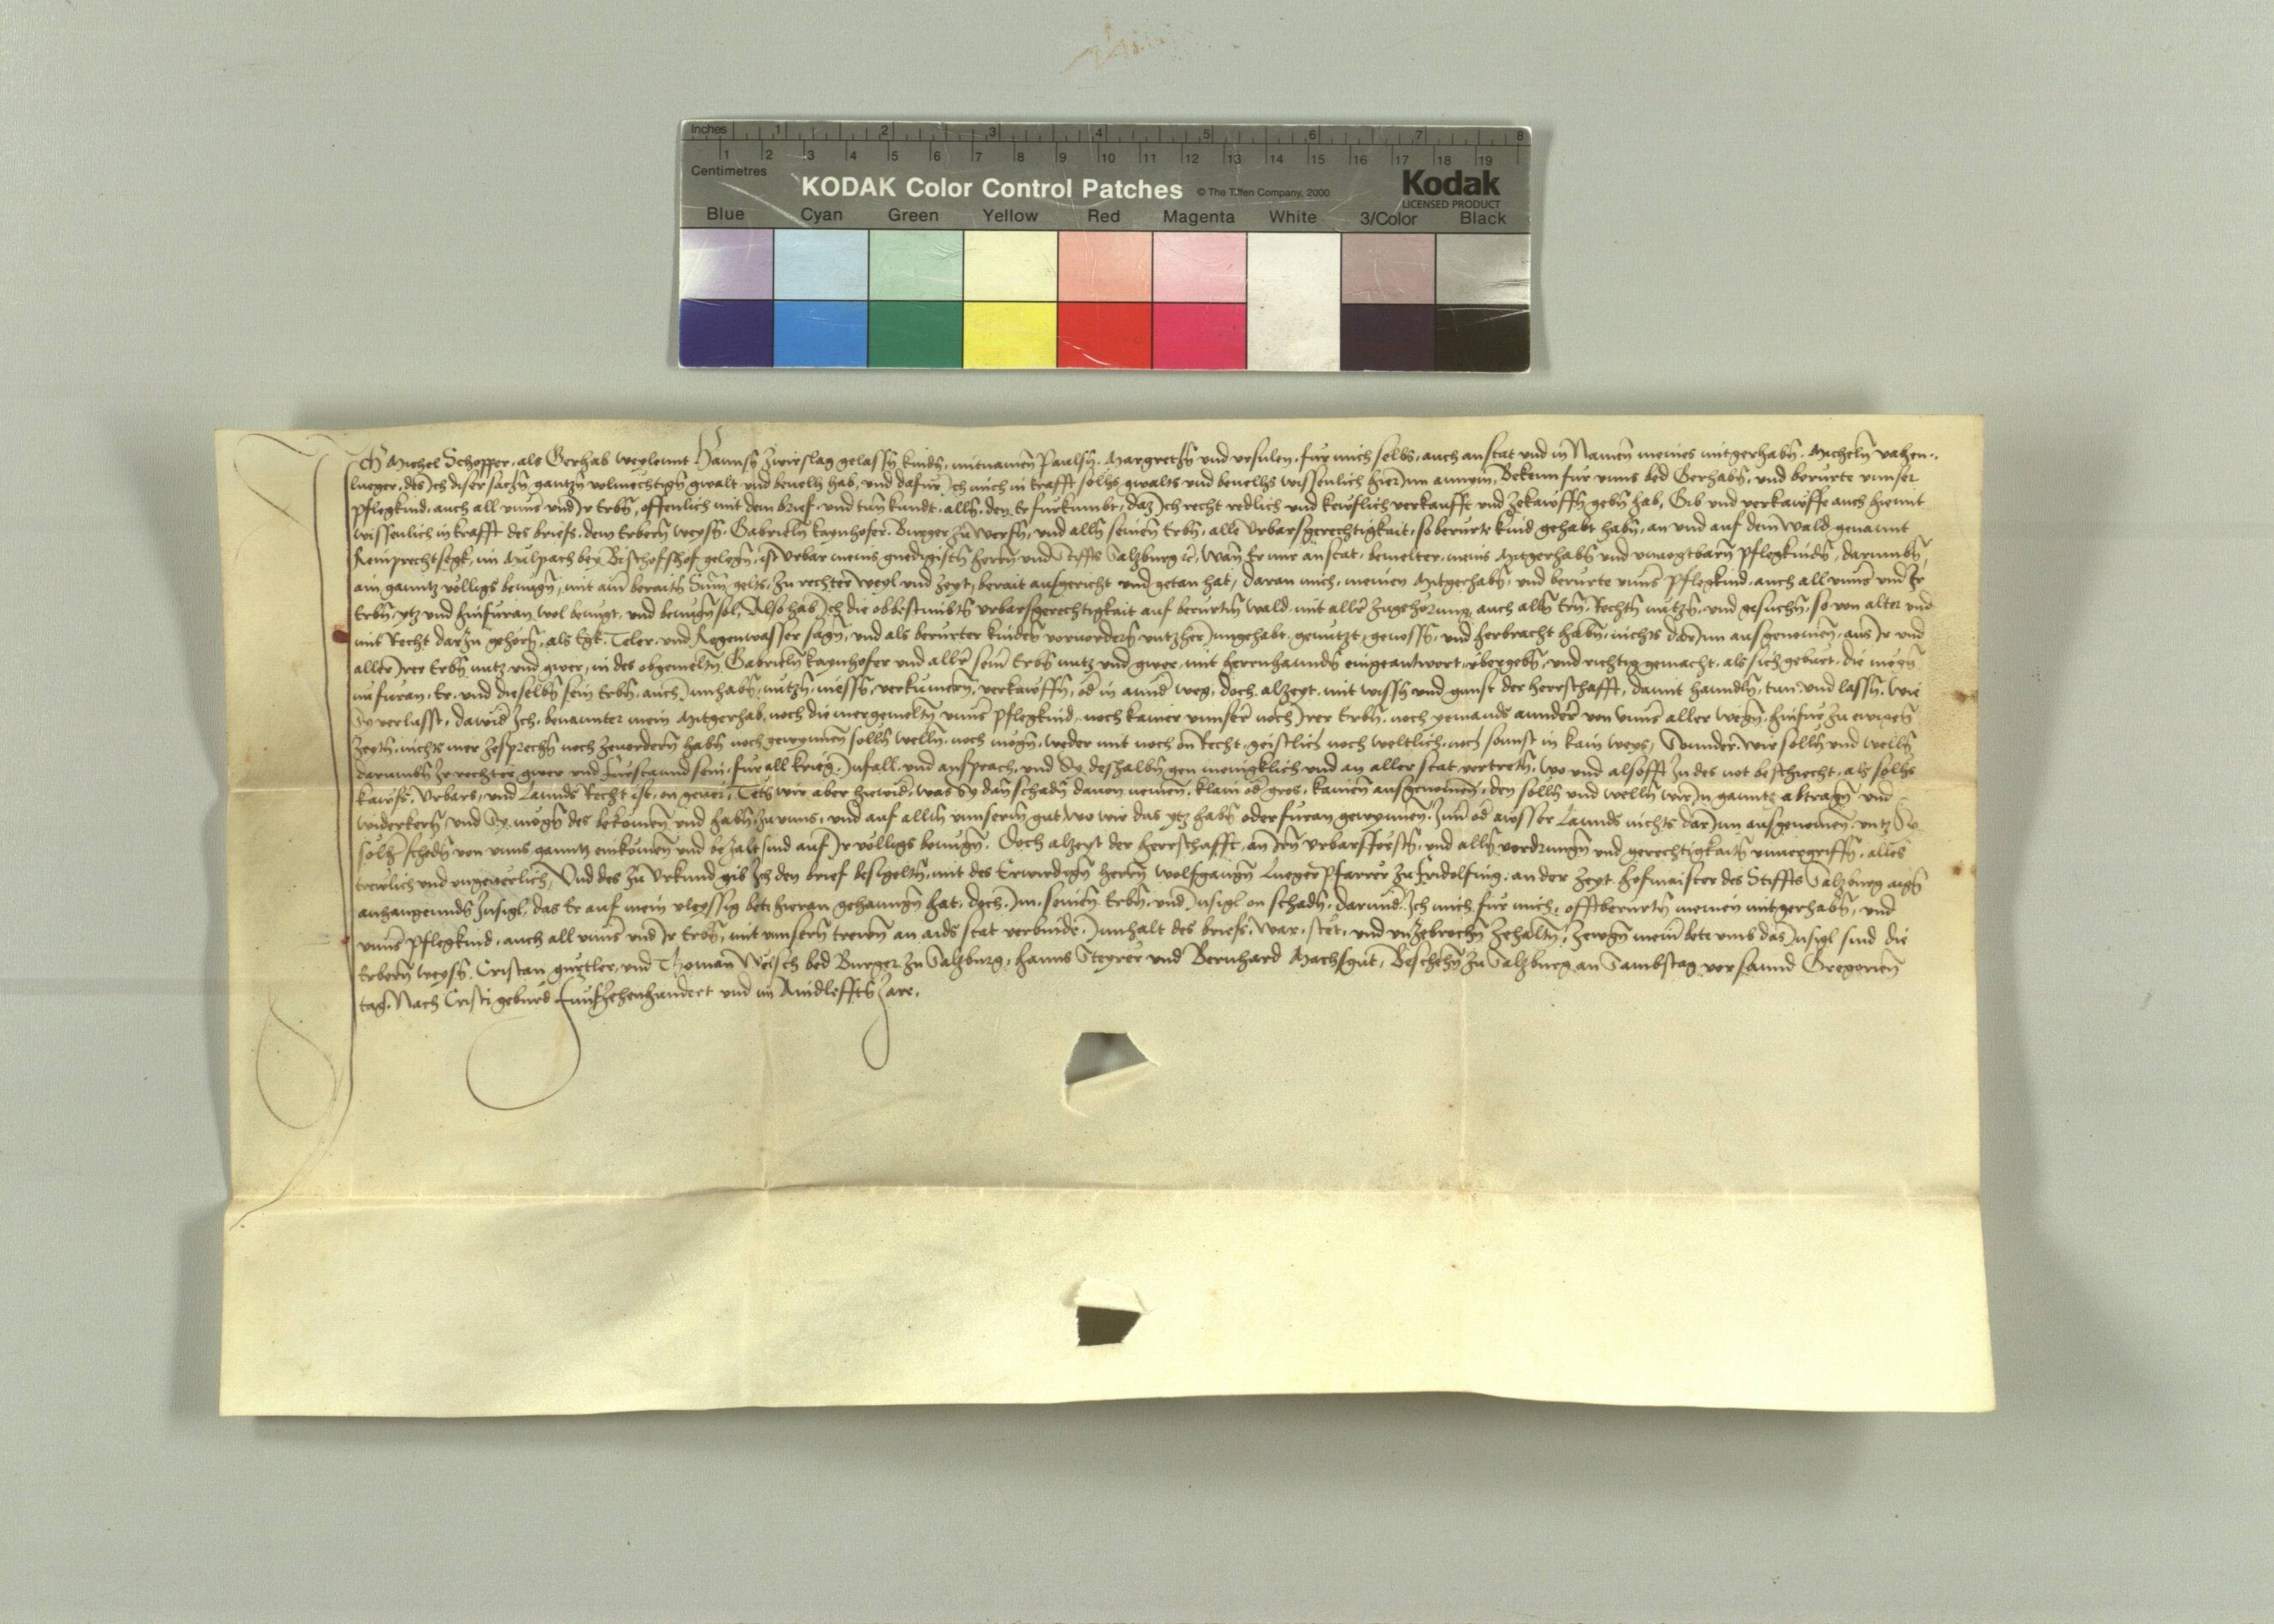 Inches 1 2 3 4 5 6 7 8
1 2 3 4 5 6 7 8 9 10 11 12 13 14 15 16 17 18 19
Centimetres
KODAK Color Control Patches © The Tiffen Company, 2000 Kodak
LICENSED PRODUCT
Blue Cyan Green Yellow Red Magenta White 3/Color Black
Ich Michel Schopper, als Gerhab weylennt Hannsn̄ Zwirslag gelassn̄ kindn̄, mitnamen̄ Paulsn̄. Margrethn̄ und vrsulen. für mich selbs, auch anstat und in Namen meines mitgerhabn̄. Micheln̄
lueger, des Ich diser sachn̄ gantzn̄ volmechtign̄ gwalt und beuelh hab, und dafür Ich mich in krafft solhs gwalts und beuelhs wissenlich hierInn annym, Bekenn für vnns bed Gerhabn̄, und berürte vnnser
pflegkind, auch all vnns̄ vnd Ir Erbn̄, offenlich mit dem brief, und tun kundt, alln̄, den Er fürkumbt, daz Ich recht redlich und keüflich verkaufft und zekawffn̄ gebn̄ hab, Gib und verkawffe auch hiemit
wissenlich in krafft des briefs, dem Erbern̄ weysn̄, Gabrieln̄ kaynhofer, Burger zu werfn̄, und alln̄ seinen̄ Erbn̄, alle Vrbarsgerechtigkait, so berürte kind gehabt habn̄, an und auf dem wald genannt
Reinprechtsegk, im Mülpach bey Bischofshof gelegn̄, ist vrbar meins gnedigistn̄ herrn̄ und Stiffts Salzburg &c, Wan̄ Er mir anstat, bemelter, meins Mitgerhabn̄ und vnuogtbarn̄ pflegkindn̄, darumbn̄
ain ganntz völligs benügn̄, mit aim beraitn̄ Sum̄ gelts, zu rechter weyl und zeyt, berait ausgericht und getan hat, daran mich, meinen Mitgerhabn̄, und berürte vnns̄ pflegkind, auch all vnns̄ vnd Ir
Erbn̄ ytz und hinfüran wol benügt, und benügn̄ sol, Also hab Ich die obbestimbtn̄ vrbarsgerechtigkait auf berürtm̄ wald mit aller zugehörung, auch alln̄ Ern̄, Rechtn̄ nutzn̄, und gesuchn̄, so von alter und
mit Recht darzu gehörn̄, als Egk Teler, und Regenwasser sagn̄, und als berürter kinder voruordern̄ vntzher Inngehabt, genutzt, genossn̄, und herbracht habn̄, nichts darInn ausgenomen̄, aus Ir und
aller Irer Erbn̄ nutz und gwer, in des obgemeltn̄ Gabrieln̄ kaynhofer und aller sein̄ Erbn̄ nutz und gwer, mit herrnhanndn̄ eingeantwort, vbergebn̄, und richtig gemacht, als sich gebürt, die mögn̄
nu furan, Er, und dieselbn̄ sein Erbn̄, auch Innhabn̄, nutzn̄, niessn̄, verkumern̄, verkawffn̄, od̄ in annd̄ weg, doch alzeyt, mit wissn̄ und gunst der herrschafft, damit hanndln̄, tun, und lassn̄, wie
Sy verlusst, dawid̄ Ich, benannter mein Mitgerhab, noch die mergemeltn̄ vnns̄ pflegkind, noch kainer vnnser noch Irer Erbn̄, noch yemands annderer von vnns̄ aller wegn̄, hinfür zu ewigen̄
zeytn̄, nichts mer zesprechn̄ noch zeuordern̄ habn̄ noch gewynnen̄ solln̄ welln̄, noch mögn̄, weder mit noch on Recht, geistlich noch weltlich, noch sonnst in kain weys, Sonnder wir solln̄ und welln̄
darumbn̄ Ir rechter gwer und fürstannd sein, für all krieg, Infall, und ansprach, und Sy deshalbn̄ gen menigklich und an aller stat vertretn̄, wo und alsofft In des not beschiecht, als solhs
kawfs, vrbars, und Lannds Recht ist, on geuer, Tetn̄ wir aber hiewid̄, was Sy dan̄ schadn̄ dauon nemen̄, klain od̄ gros, kainen̄ ausgenomen̄, den solln̄ und welln̄ wir In ganntz abtragn̄ und
widerkern̄, und Sy mögn̄ des bekomen̄ und habn̄, zu vnns, und auf allm̄ vnnserm̄ gut wo wir das ytz habn̄ oder füran gewynnen̄, Inn̄ od̄ awsser Lannds nichts darInn ausgenomen̄, vntz Sy
solh schedn̄ von vnns ganntz einkomen̄ und bezalt sind auf Ir völligs benügn̄. Doch alzeyt der herrschafft, an Irn̄ vrbarsforstn̄, und alln̄ vordrungn̄ und gerechtigkaitn̄ vnuergriffn̄, alles
trewlich und vngeuerlich, Und des zu Vrkund gib Ich den brief besigeltn̄, mit des Erwirdign̄ herrn̄ Wolfgangn̄ Lueger Pfarrer zu Fridolfing, an der zeyt hofmaister des Stiffts Salzburg aign̄
anhangennds Insigl, das Er auf mein vleyssig bete hieran gehanngn̄ hat, doch Im, seinen̄ Erbn̄, und Insigl on schadn̄, darund̄ Ich mich für mich, offtberürtn̄ meinen mitgerhabn̄, und
vnns̄ Pflegkind, auch all vnns̄ vnd Ir Erbn̄, mit vnnsern̄ trewn̄ an aids stat verbinde, Innhalt des briefs, war, stet, und vnzebrochn̄ zehaltn̄, zewgn̄ meiner bete vmb das Insigl sind die
Erbern̄ weysn̄, Cristan gürtler, und Thoman Wëlsch bed Burger zu Salzburg, Hanns Steyrer und Bernhard Machsgut, Beschehn̄ zu Salzburg an Sambstag vor sannd Gregorien̄
tag, Nach Cristi geburd Fünfzehenhundert und im Aindlefftn̄ Jare.